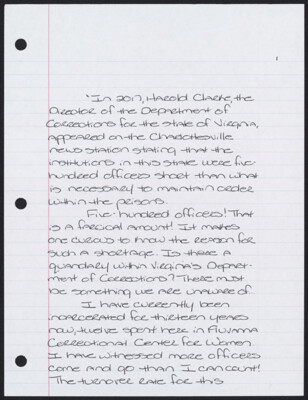 1
"In 2017, Harold Clarke, the
Director of the Department of
Corrections for the state of Virginia,
appeared on the Charlottesville
news station stating that the
institutions in this state were five-
hundred officers short than what
is necessary to maintain order
within the prisons.
Five-hundred officers! That
is a farcical amount! It makes
one curious to know the reason for
such a shortage. Is there a
quandary within Virginia's Depart-
ment of Corrections? There must
be something we are unaware of.
I have currently been
incarcerated for thirteen years
now, twelve spent here in Fluvanna
Correctional Center for Women.
I have witnessed more officers
come and go than I can count!
The turnover rate for this